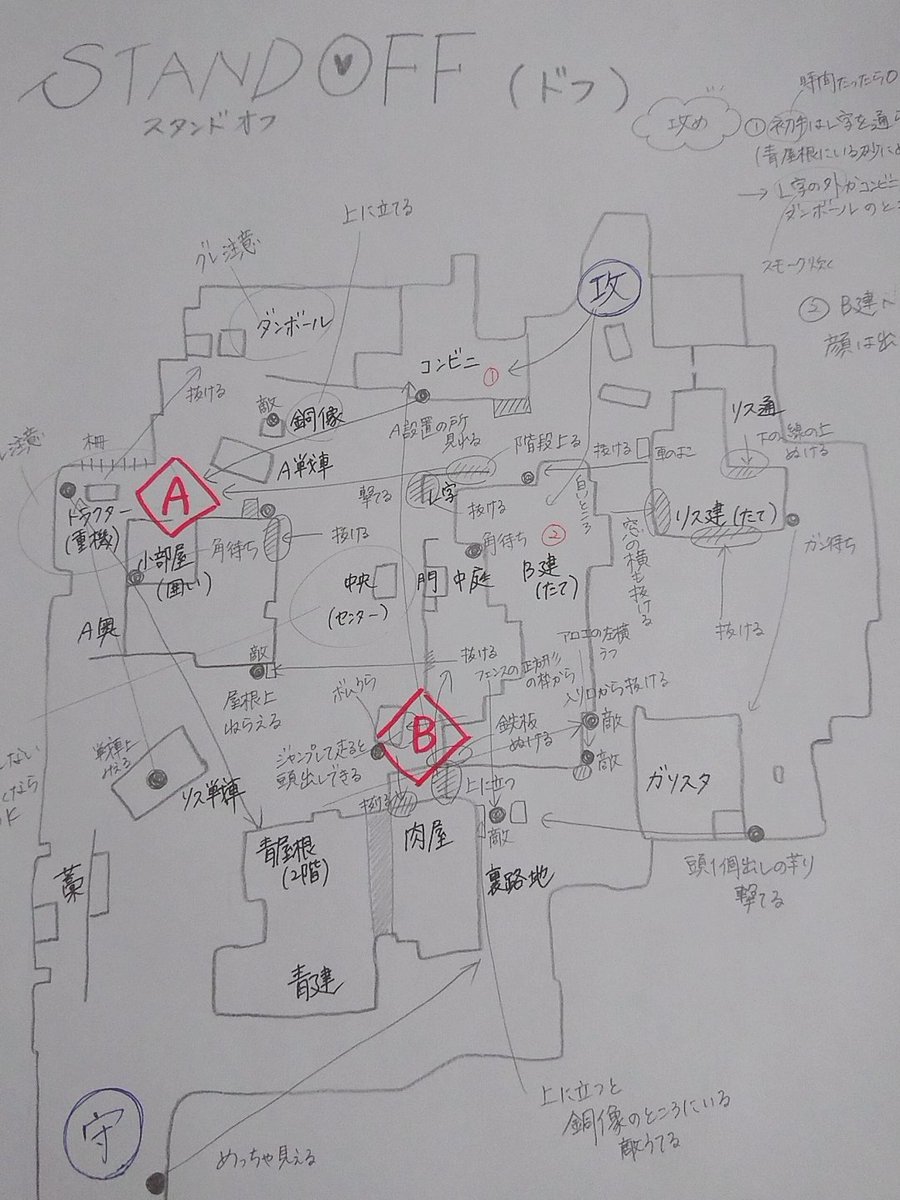 STANDOFF (ドフ)
スタンドオフ
時間たったら
攻め
①初手はL字を通
(青屋根にいる砂に
→L字の外かコンビニ
ダンボールのとこ
スモーク炊く
② B建
顔は出
上に立てる
グレ注意
ダンボール
攻
コンビニ ①
抜ける
敵
銅像
A設置の所
見れる
リス通
下の線の上
ぬける
注意
柵
A戦車
階段上る
抜ける
車のよこ
A
撃てる
L字
抜ける
白いところ
リス建(たて)
トラクター
(重機)
小部屋
(囲い)
角待ち
抜ける
角待ち
②
窓の横も抜ける
ガン待ち
中央
(センター)
門
中庭
B建
(たて)
抜ける
A奥
敵
屋根上
ねらえる
抜ける
フェンスの正方形
の枠から
アロエの左横
うつ
入り口から抜ける
ボムうら
B
鉄板
ぬける
敵
敵
戦車上
みえる
リス戦車
ジャンプして走ると
頭出しできる
上に立つ
ガリスタ
抜ける
青屋根
(2階)
肉屋
敵
裏路地
頭1個出しの芋り
撃てる
藁
青建
上に立つと
銅像のところにいる
敵うてる
守
めっちゃ見える